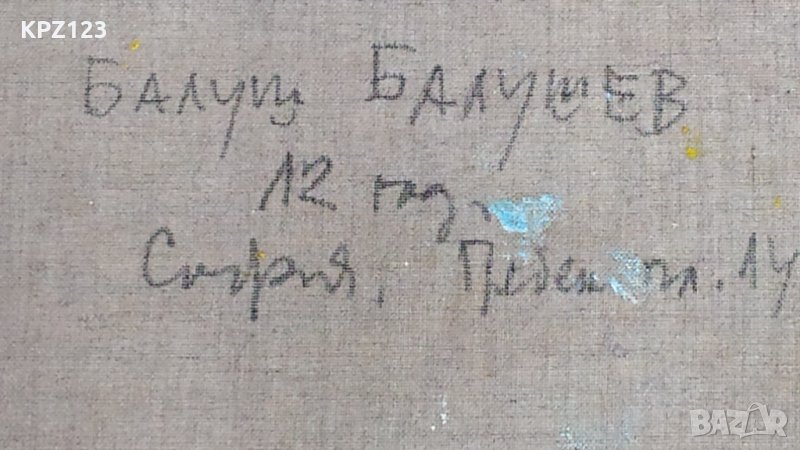 KPZ123
БАЛУЩ БАЛУШЕВ
12 год.
София, гл. 14
BAZAR